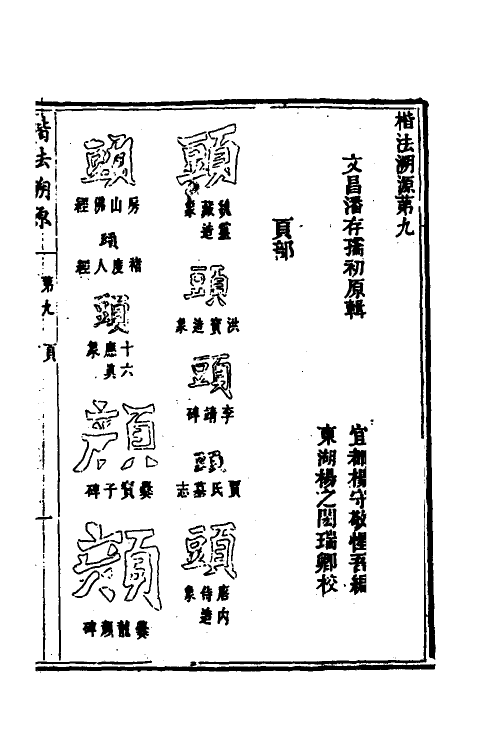 楷法溯源第九
文昌潘存孺初原輯
宜都楊守敬惺吾編
東湖楊之閎瑞卿校
頁部
頭
魏靈藏造象
頭
洪寶造象
頭
李請碑
頭
賈氏墓志
頭
唐內侍造象
頭
房山佛經
頭
褚度人經
頭
十六應真象
顏
爨寶子碑
顏
爨龍顏碑
楷法溯原 第九 頁